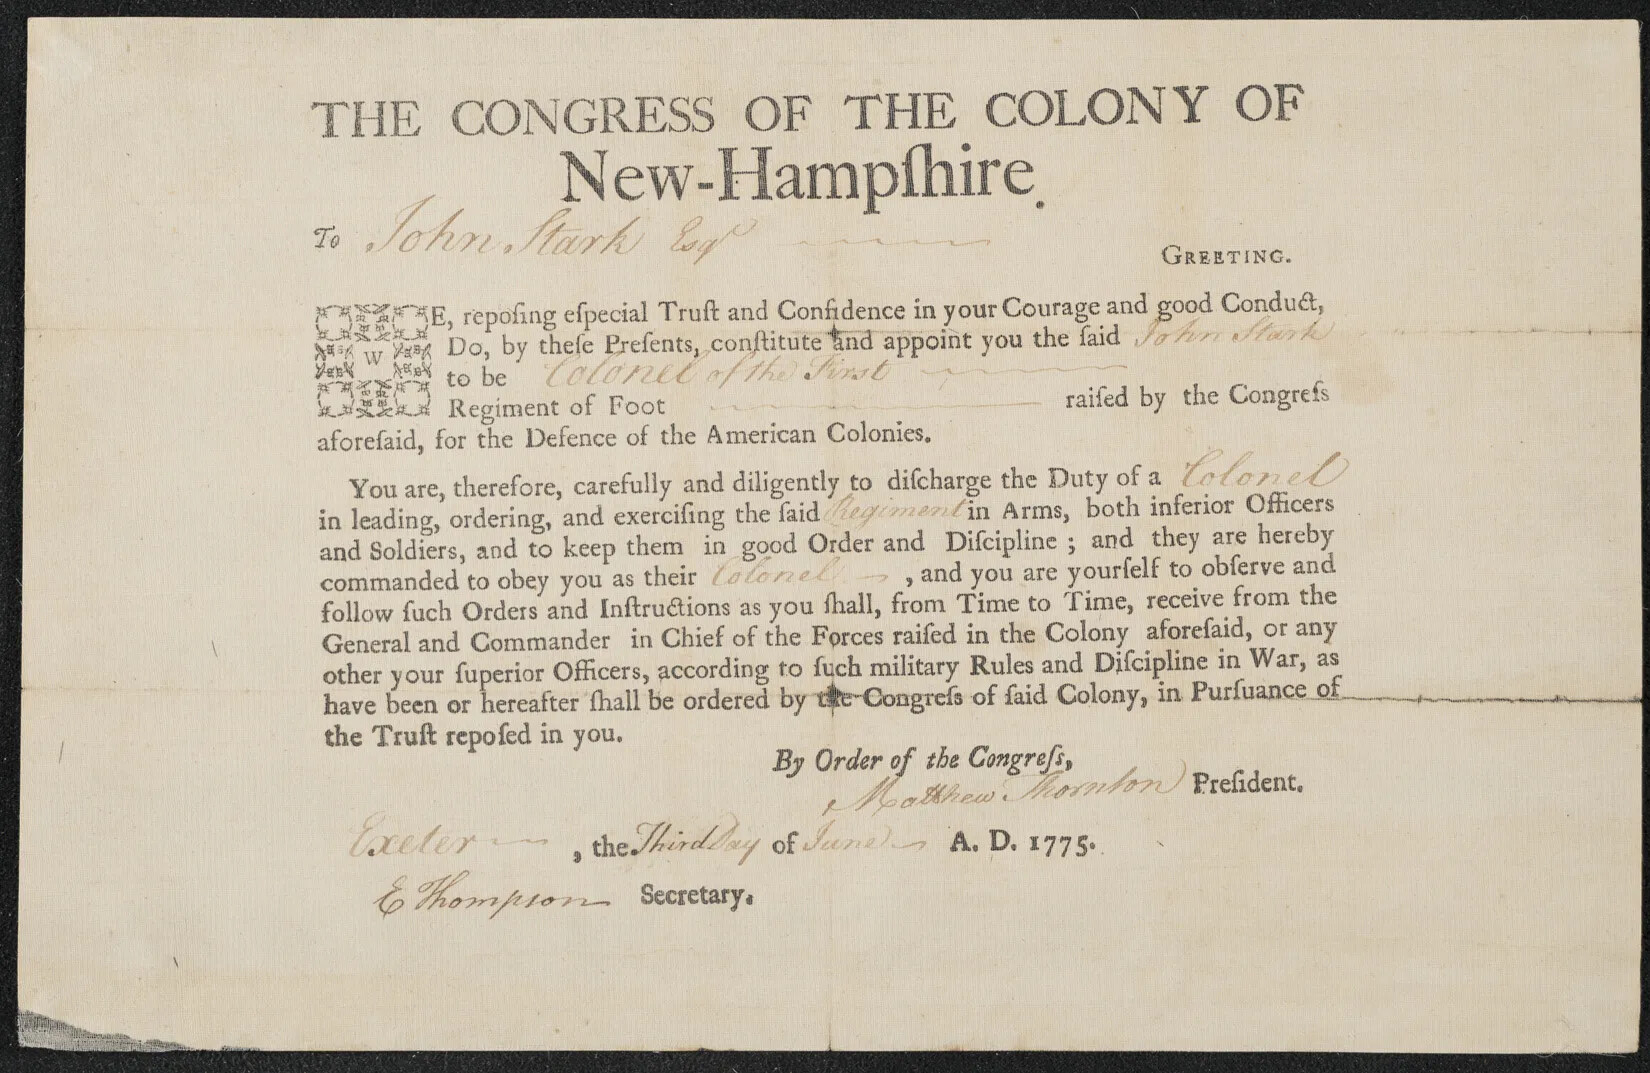 THE CONGRESS OF THE COLONY OF
New-Hampſhire.
To John Stark Esqr
GREETING.
WE, repoſing eſpecial Truſt and Confidence in your Courage and good Conduct,
Do, by theſe Preſents, conſtitute and appoint you the ſaid John Stark
to be Colonel of the First
Regiment of Foot raiſed by the Congreſs
aforeſaid, for the Defence of the American Colonies.
You are, therefore, carefully and diligently to diſcharge the Duty of a Colonel
in leading, ordering, and exerciſing the ſaid Regiment in Arms, both inferior Officers
and Soldiers, and to keep them in good Order and Diſcipline ; and they are hereby
commanded to obey you as their Colonel , and you are yourſelf to obſerve and
follow ſuch Orders and Inſtructions as you ſhall, from Time to Time, receive from the
General and Commander in Chief of the Forces raiſed in the Colony aforeſaid, or any
other your ſuperior Officers, according to ſuch military Rules and Diſcipline in War, as
have been or hereafter ſhall be ordered by the Congreſs of ſaid Colony, in Purſuance of
the Truſt repoſed in you.
By Order of the Congreſs,
Matthew Thornton Preſident.
Exeter , the Third Day of June A. D. 1775.
E Thompson Secretary.